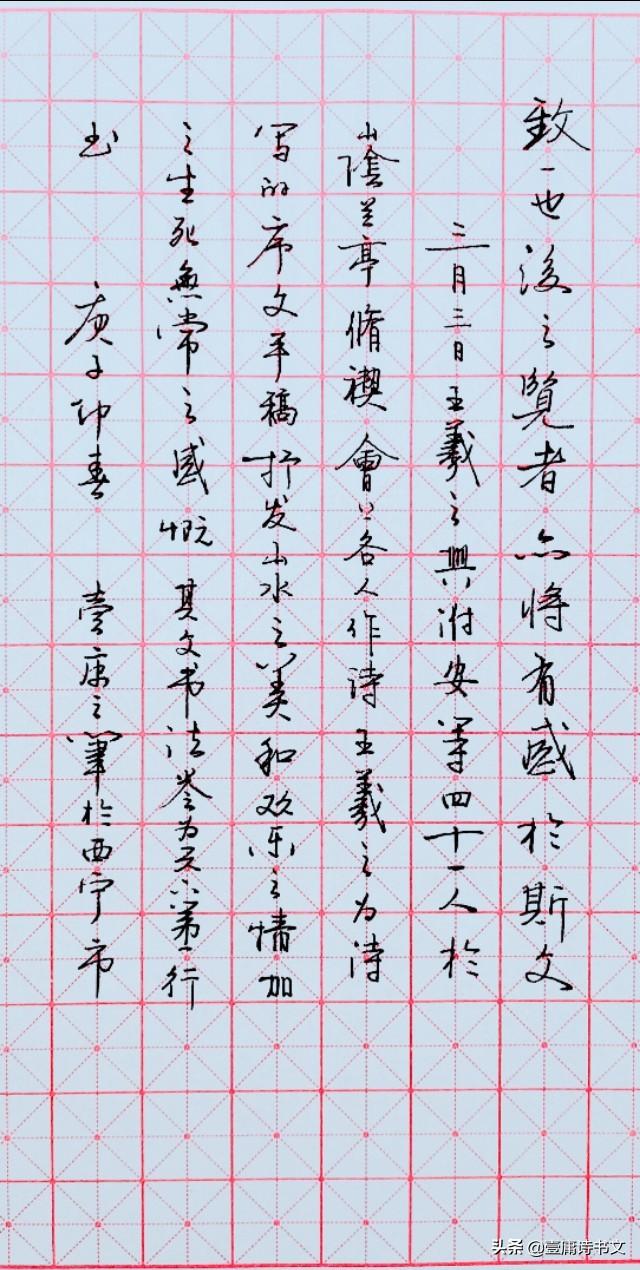 致一也後之覽者亦將有感於斯文
三月三日王羲之與谢安等四十一人於
山陰兰亭脩禊會上各人作诗王羲之为诗
写的序文手稿抒发山水之美和欢乐之情加
之生死無常之感慨其文书法誉为天下第一行
书 庚子仲春 康之筆於西宁市
头条 @壹庸诗书文